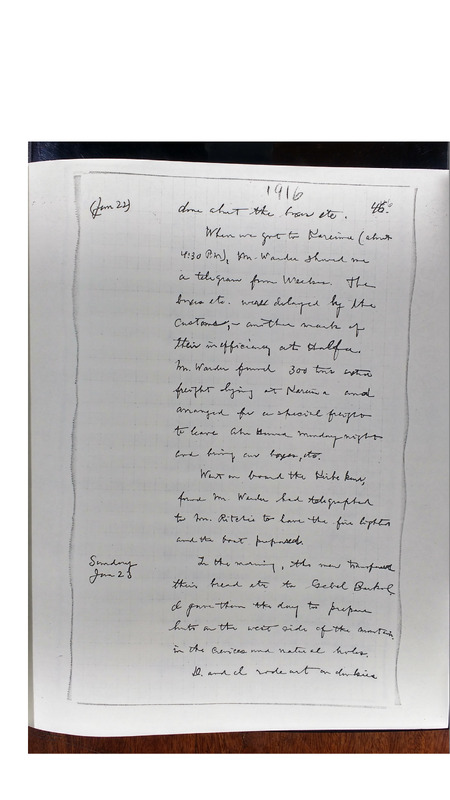 1916
(Jan 22) done about the boxes etc. 46.
When we got to Kareima (about
4:30 P.M), Mr. Warder showed me
a telegram from Weekes. The
boxes etc. were delayed by the
Customs, - another mark of
their inefficiency at Halfa.
Mr. Warder found 300 tons extra
freight lying at Kareima and
arranged for a special freight
to leave Abu Hamed Monday night
and bring our boxes, etc.
Went on board the Hibe
found Mr. Warder had telegraphed
to Mr. Ritchie to have the fire lighted
and the boat prepared.
Sunday In the morning, the men transferred
Jan 23 their bread etc to Gebel Barkal.
I gave them the day to prepare
huts on the west side of the mountain,
in the crevices and natural holes.
D. and I rode out on donkies